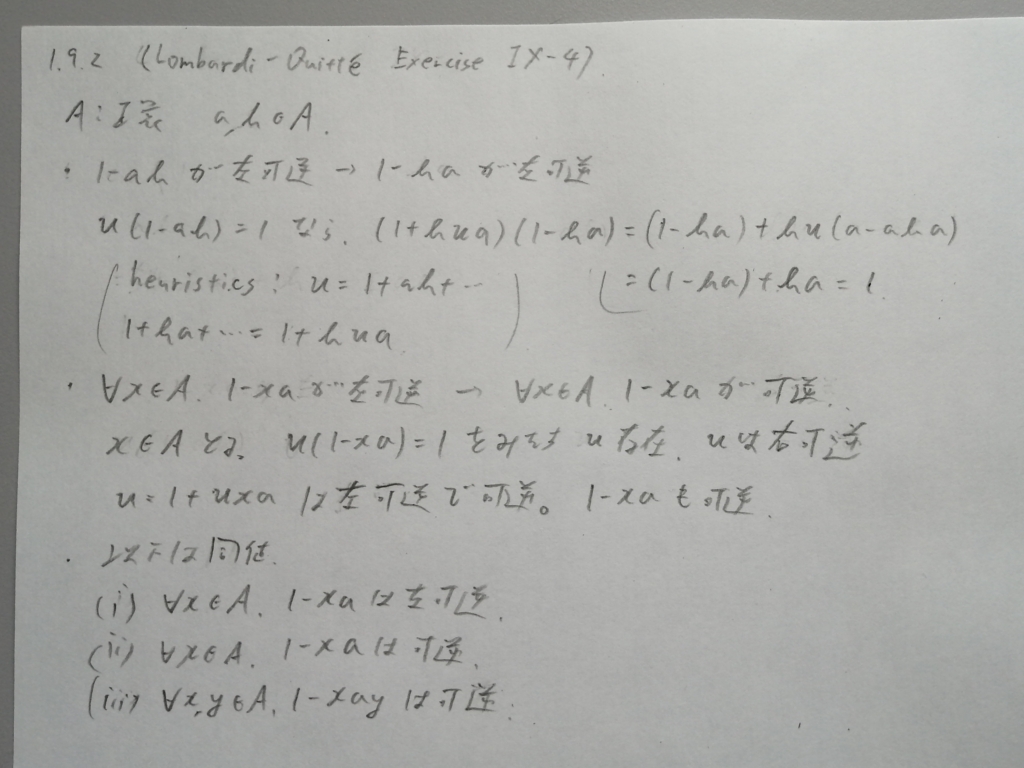 1.9.2 (Lombardi-Quitté Exercise IX-4)
A:環 a,b∈A.
・1-ab が左可逆 → 1-ba が左可逆
u(1-ab)=1 なら, (1+bua)(1-ba)=(1-ba)+bu(a-aba)
(heuristics: u=1+ab+… =(1-ba)+ba=1.
1+ba+…=1+bua)
・∀x∈A. 1-xa が左可逆 → ∀x∈A. 1-xa が可逆.
x∈A とる, u(1-xa)=1 をみたす u 存在. u は右可逆
u=1+uxa は左可逆で可逆。1-xa も可逆.
・以下は同値.
(i) ∀x∈A. 1-xa は左可逆.
(ii) ∀x∈A. 1-xa は可逆.
(iii) ∀x,y∈A. 1-xay は可逆.